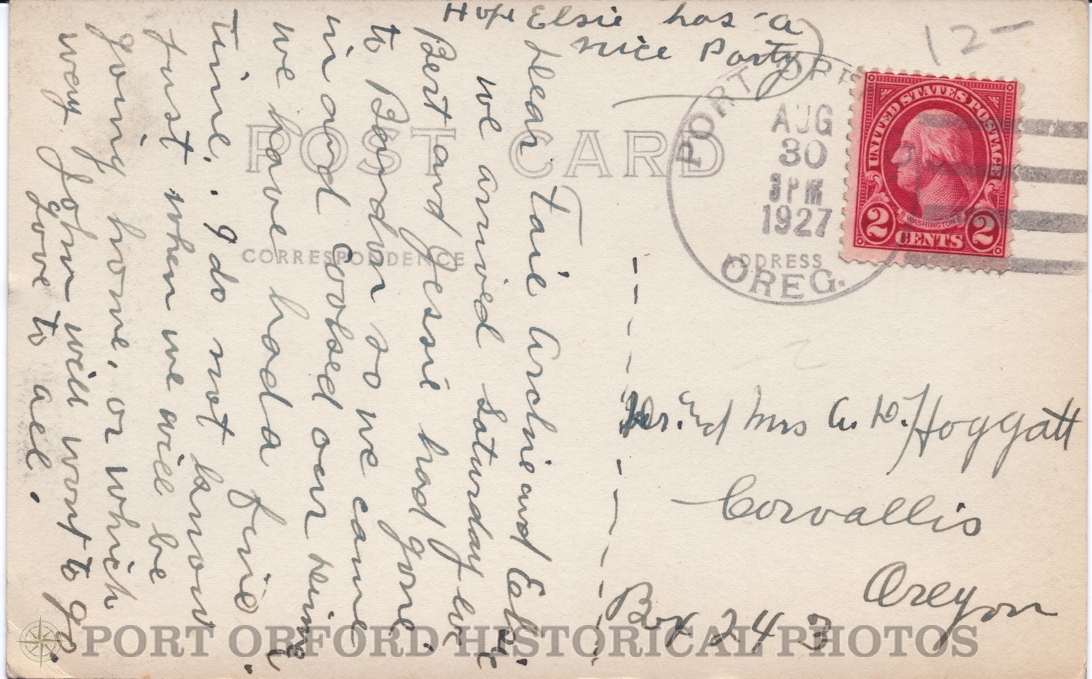 Hope Elsie has a
nice Party
12-
POST CARD
CORRESPONDENCE
ADDRESS
PORT ORF
AUG
30
3 PM
1927
OREG.
UNITED STATES POSTAGE
WASHINGTON
2 CENTS 2
Dear Archie and
we arrived Saturday eve
Bert and Jessie had gone
to Bandon so we came
in and cooked our
we have had a fine
time. I do not know
just when we will be
going home, or which
way John will want to go.
love to all.
Mr. and Mrs A. W. Hoggatt
Corvallis
Oregon
Box 243
PORT ORFORD HISTORICAL PHOTOS